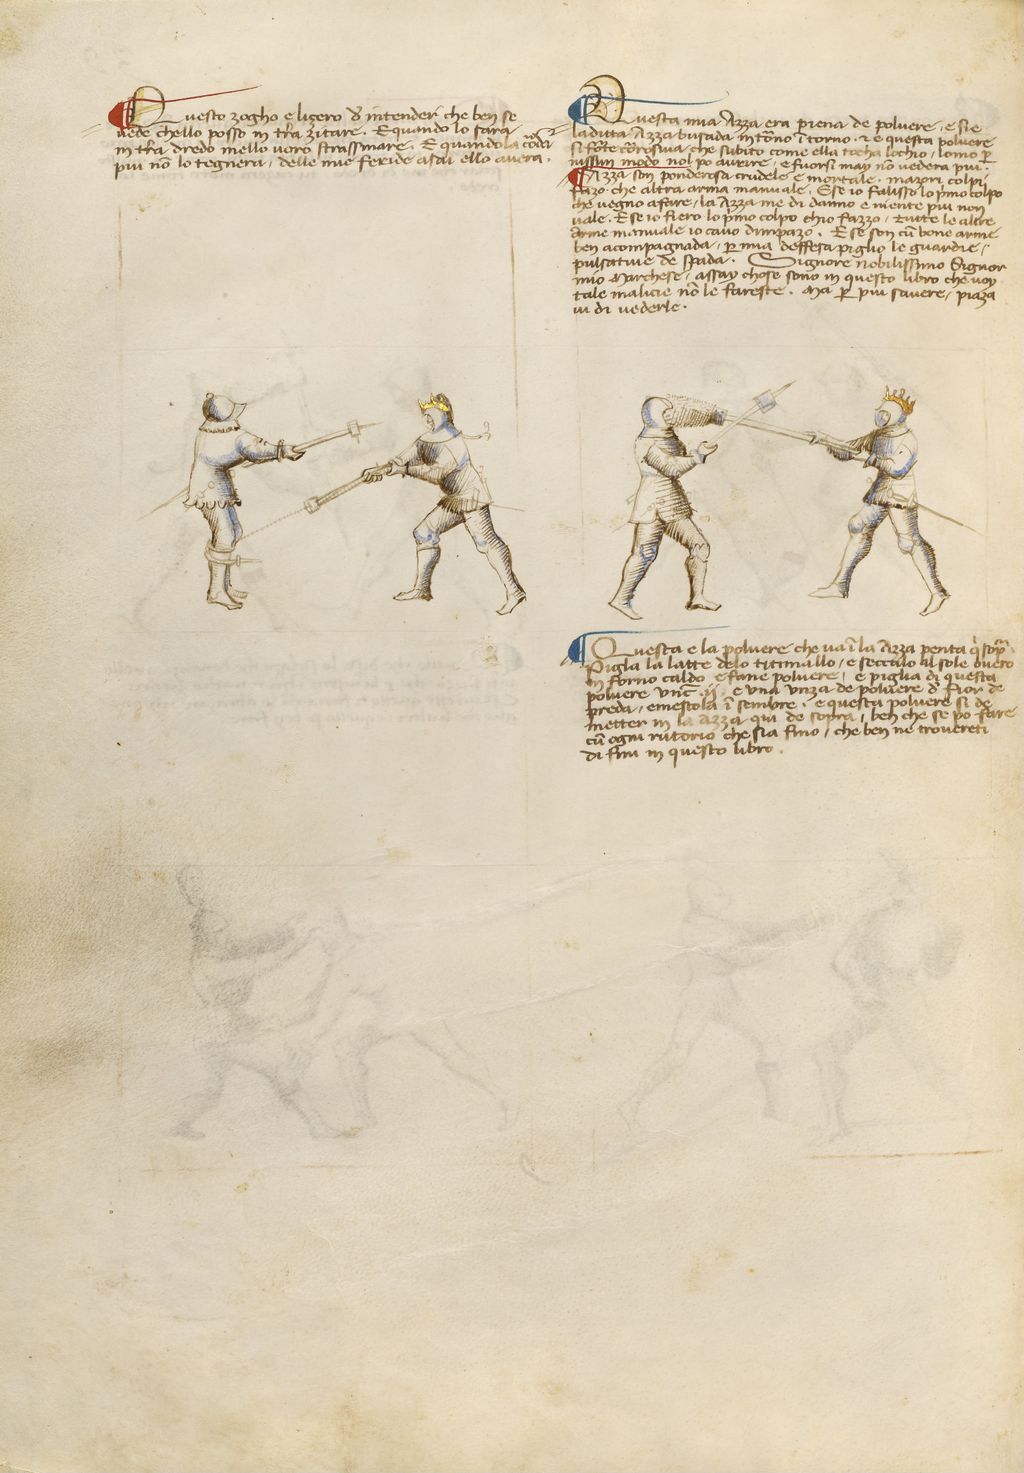 Questo zogho e lizero d' intender che ben se
vede chello posso in t'ra zitare. E quando lo farò
in t'ra dredo mello vorò strassinare. E quando la coda nol
più nō lo tegnerà, delle mie feride asai ello averà.
Questa mia Azza era piena de polvere, e sie
la ditta Azza busada intōno ītorno. & e questa polvere
si fōte corosiva che subito come ella tocha lochio, lomo p
nissun modo nol po avrire, e fuorsi may nō vederà più.
Azza son ponderosa crudele e mortale. mazori colpi
fazo che altra arma manuale. E se io falisso lo p'mo colpo
che vegno a fare, la Azza me di danno e niente più non
vale. E se io fiero lo p'mo colpo ch'io fazzo, tutte le altre
arme manuale io cavo d'impazo. E se son cū bone arme
ben acompagnada, p mia deffesa piglio le guardie,
pulsative de spada. Signore nobilissimo Signor
mio Marchese, assay chose sono in questo libro che voy
tale malicie nō le fareste. Ma p più savere, piaza
vi di vederle.
Questa e la polvere che va ī la Azza penta q' sop'
Pigla la latte delo titimallo, e seccalo al sole overo
in forno caldo e fane polvere, e piglia di questa
polvere unc. ij. e una unza de polvere d' fior de
preda, e mescola ī sembre. e questa polvere si de
metter in la Azza qui de sopra, ben che se po fare
cū ogni rutorio che sia fino, che ben ne trovereti
di fini in questo libro.